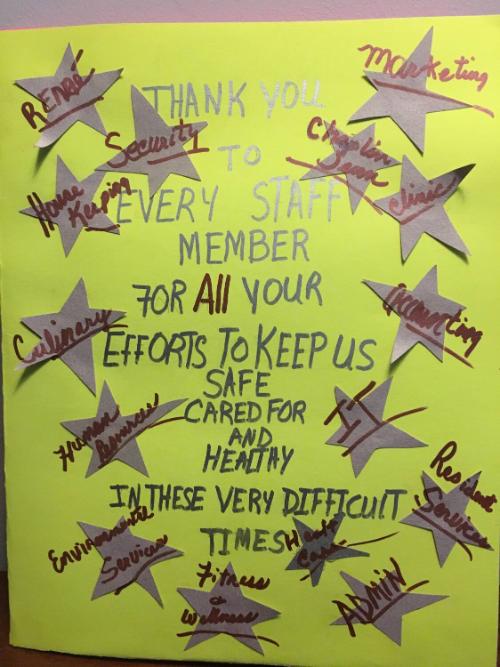 THANK YOU
TO
EVERY STAFF
MEMBER
FOR All YOUR
EFFORTS TO KEEP US
SAFE
CARED FOR
AND
HEALTHY
IN THESE VERY DIFFICULT
TIMES
RENEÉ
Marketing
Security
Chaplin
House
Keeping
Clinic
Culinary
Accounting
Human
Resources
IT
Resident
Services
Environmental
Services
Health
Care
Fitness
&
Wellness
ADMIN